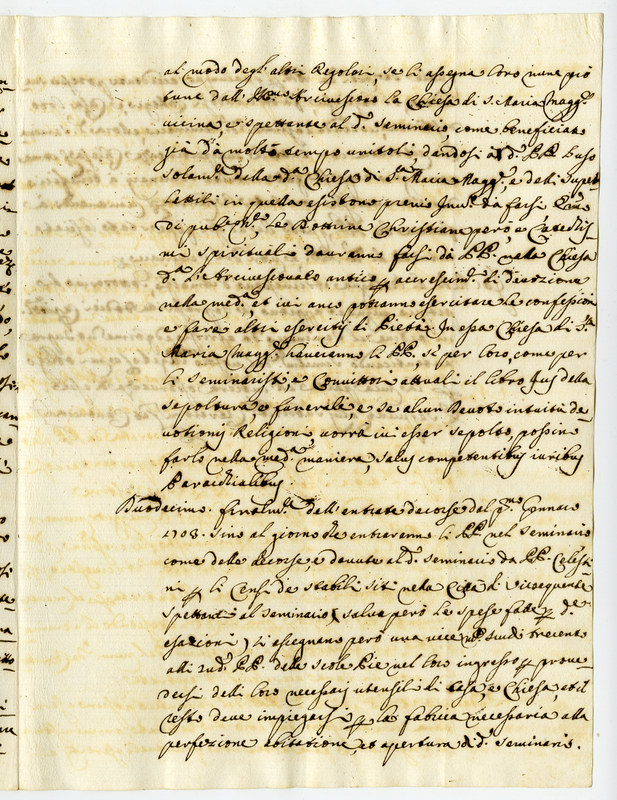 al modo degl'altri Regolari, se li assegna loro nunc pro
tunc dall' Ill.mo Arcivescovo la Chiesa di S. Maria Magg.e
vicina, e spettante al d.o seminario, come beneficiato
già da molto tempo unitoli, dandosi a d. PP. l'uso
solam.te della d.a Chiesa di S.ta Maria Magg.e, e delli supel-
lettili in quella esistono previo Inu.o da farsi
di pub.co, Le Dottrine Christiane però, e Catechis-
mi spirituali dauranno farsi da PP. nella Chiesa
d.a L'Arcivescovato antico p accrescim.to di diuozione
nella med.a, et iui anco potranno esercitare le confessioni
e fare altri esercitij di Pietà. In essa Chiesa di S.ta
Maria Magg.e haueranno li PP., sì per loro, come per
li seminaristi, e Convittori attuali il libro Jus della
sepoltura, e funerali, e se alcun Deuoto intuitu de-
uotionis Religioni, uorrà iui esser sepolto, possino
farlo nella med.a maniera, saluis competentibus iuribus
Parochialibus.
Duodecimo. finalm.te dell'entrate decorse dal p.mo Gennaro
1708. sino al giorno che entreranno li PP. nel seminario
come delle decorse, e douute al d.o seminario da PP. Celesti-
ni p li Censi de stabili siti nella Città di
spettanti al seminario (salue però le spese fatte p d.e
esazioni) si assegnano però una uice scudi trecento
alli Rud.i PP. delle scole Pie nel loro ingresso p proue-
dersi delli loro necessarij utensili di casa, e Chiesa, et il
resto deue impiegarsi p la fabrica necessaria alla
perfezione abitatione, et apertura di d.o seminario.